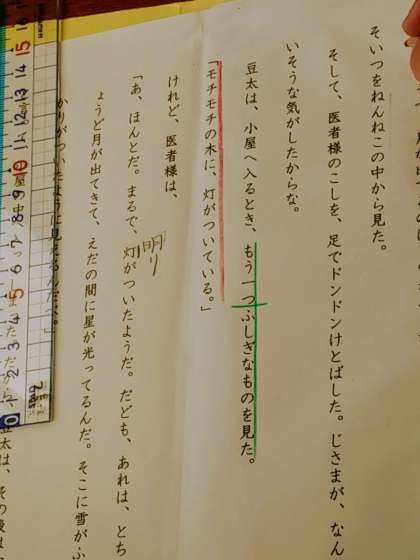 そいつをねんねこの中から見た。
そして、医者様のこしを、足でドンドンけとばした。じさまが、なん
いそうな気がしたからな。
豆太は、小屋へ入るとき、もう一つふしぎなものを見た。
「モチモチの木に、灯がついている。」
けれど、医者様は、
「あ、ほんとだ。まるで、灯がついたようだ。だども、あれは、とち
明り
ょうど月が出てきて、えだの間に星が光ってるんだ。そこに雪がふ
かりがついたように見えるんだ
豆太は、その